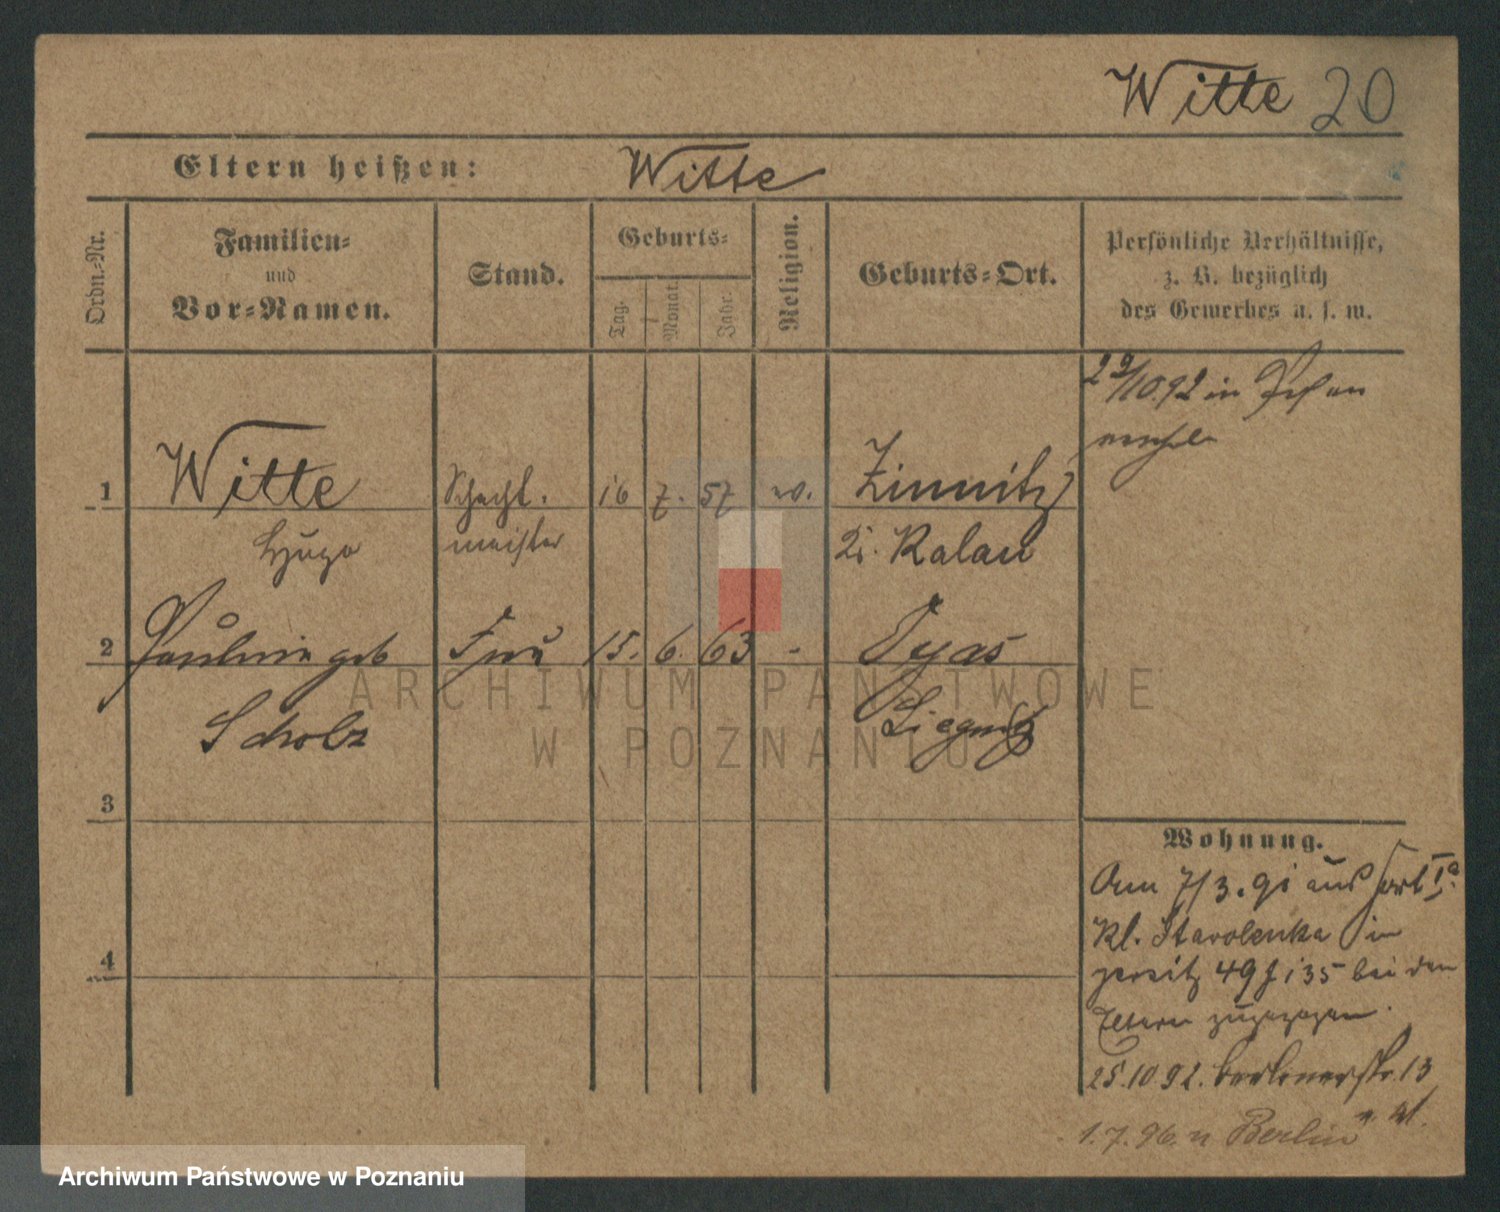 Witte 20
Eltern heißen: Witte
Ordn.-Nr.
Familien-
und
Vor-Namen.
Stand.
Geburts-
Tag.
Monat.
Jahr.
Religion.
Geburts-Ort.
Persönliche Verhältnisse,
z. B. bezüglich
des Gewerbes u. s. w.
29/10.92 in
1 Witte Schacht- 16 7. 57 Zinnitz
Hugo meister Kalau
2 Pauline geb Frau 15. 6. 63 - Oyas
Scholz Liegnitz
3
4
Wohnung.
Am 7/3. 91 aus Fort Ia
Kl. Starolenka in
Jersitz 49 bei den
Eltern zugezogen.
25.10 92. Berlinerstr. 13
1.7.96. n Berlin
ARCHIWUM PAŃSTWOWE
W POZNANIU
Archiwum Państwowe w Poznaniu